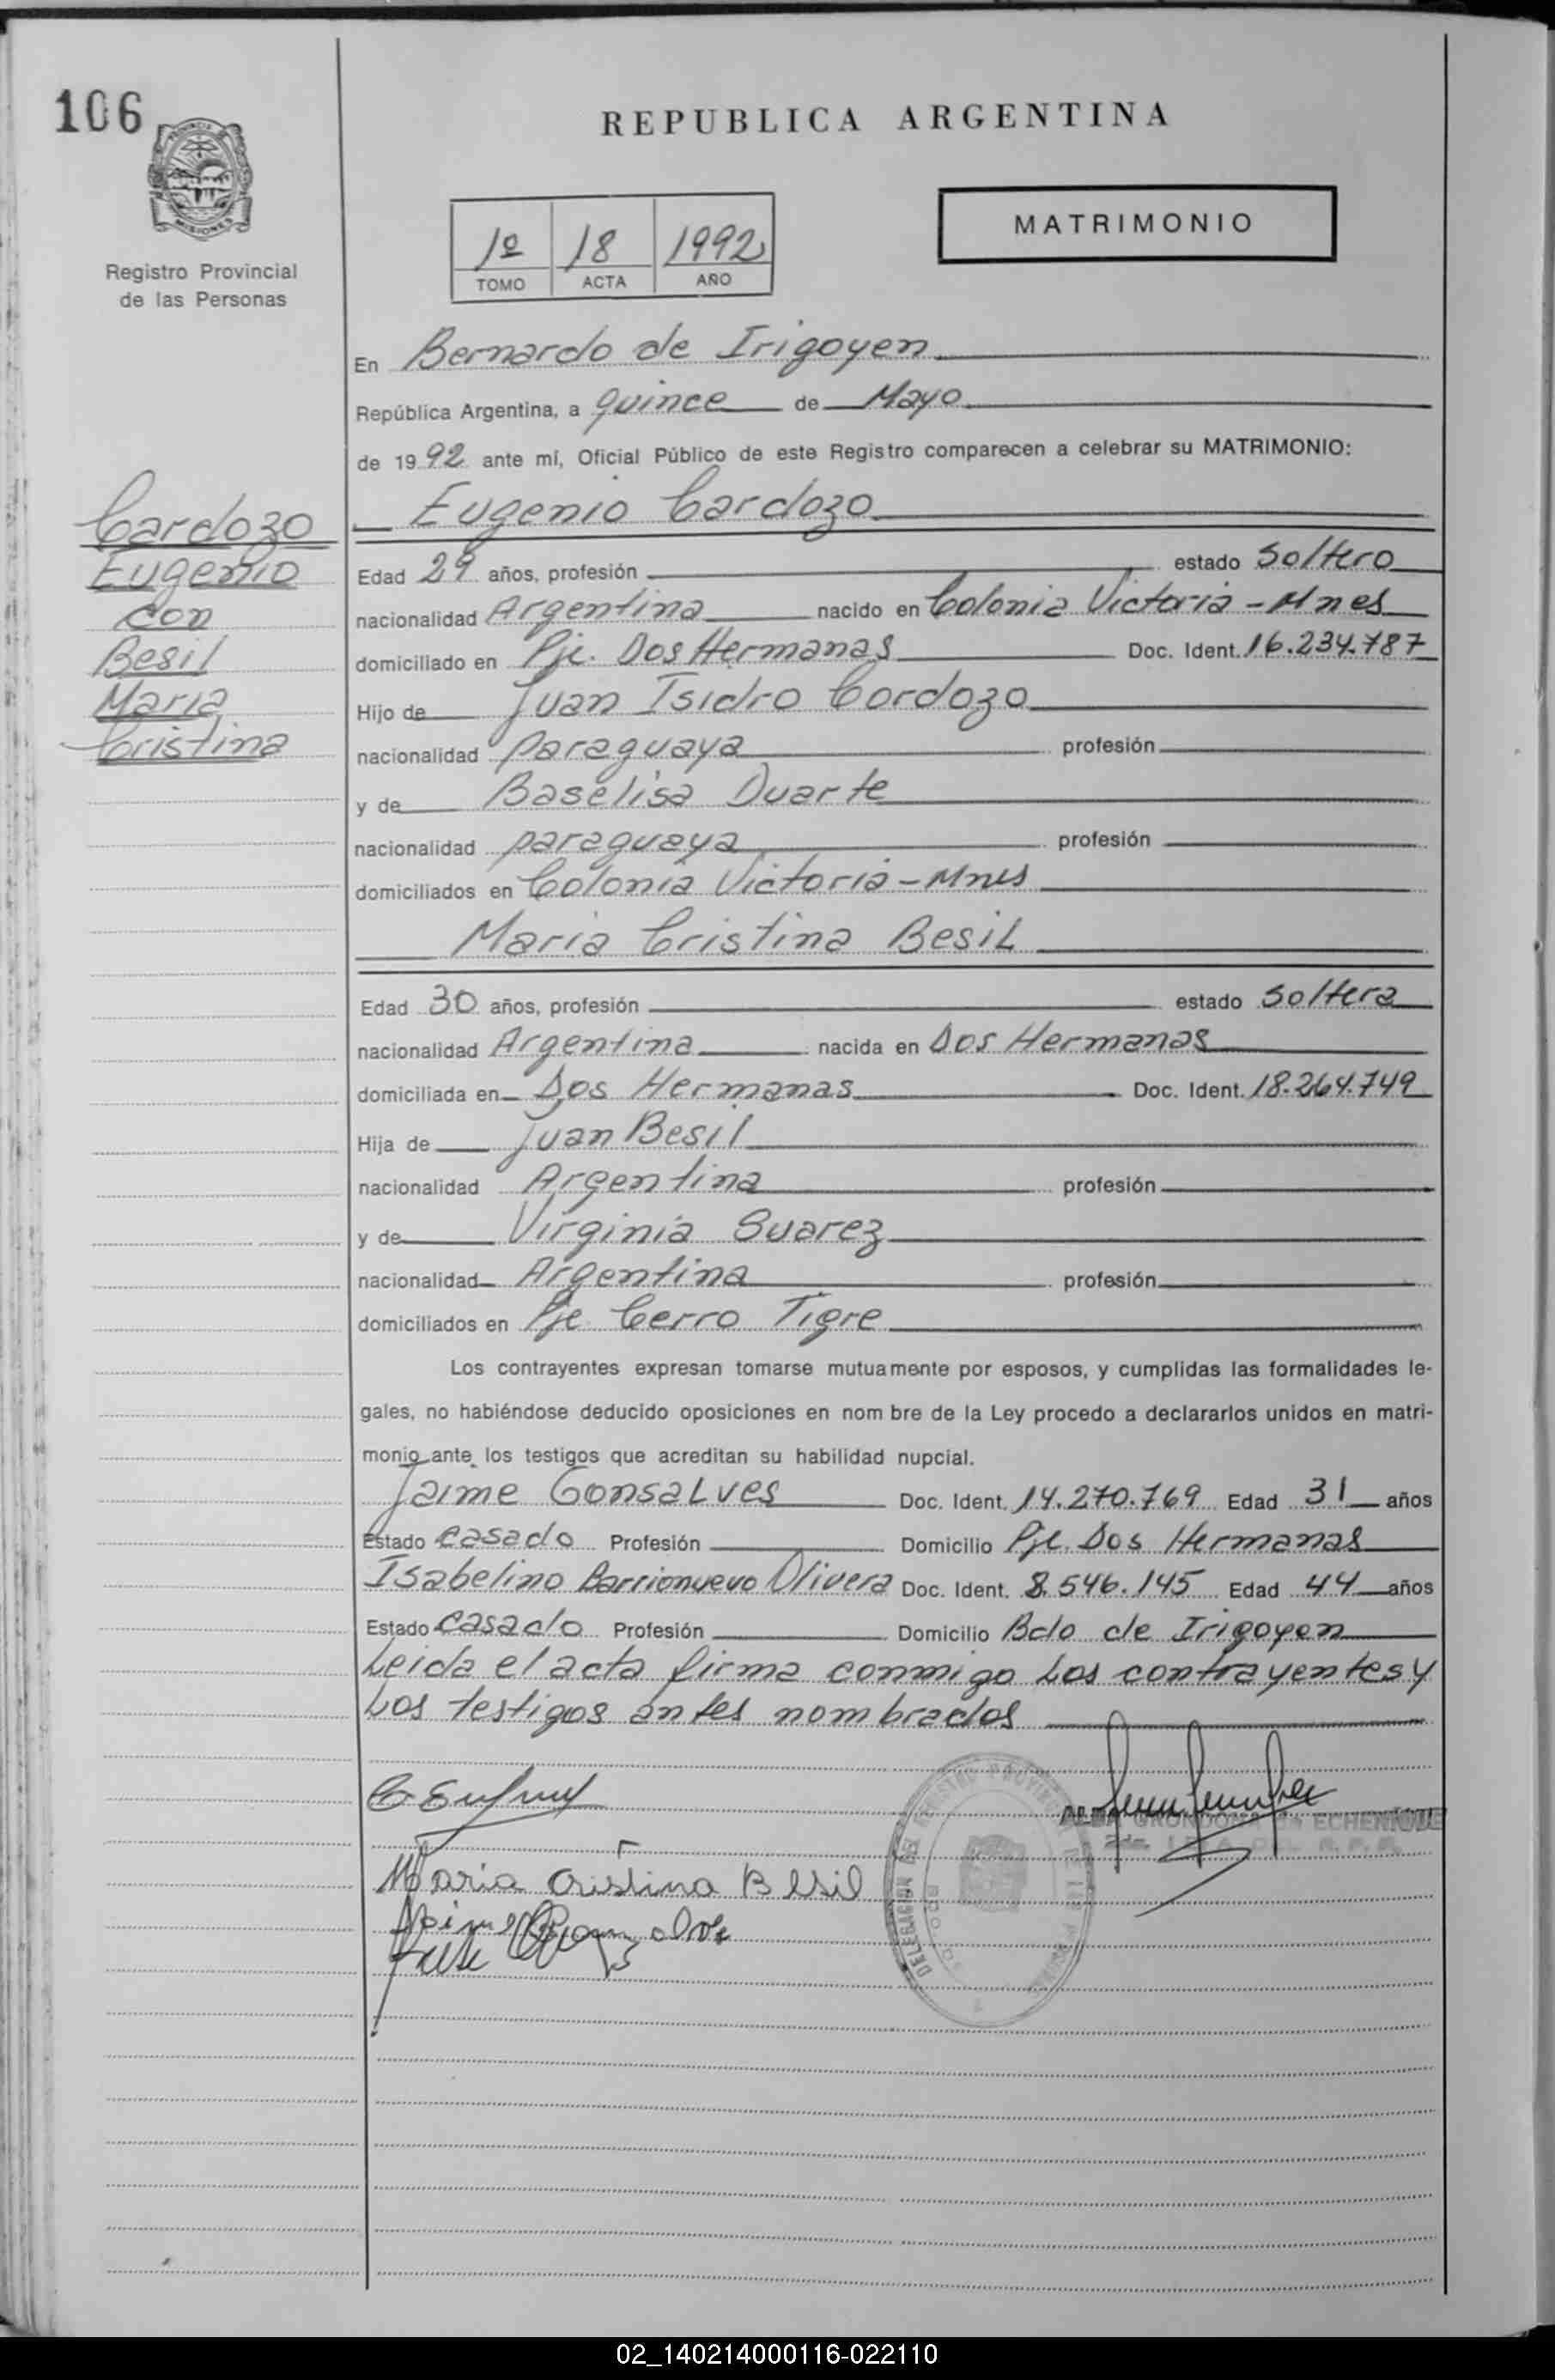 106
REPUBLICA ARGENTINA
PROVINCIA DE
MISIONES
Registro Provincial
de las Personas
1º 18 1992
TOMO ACTA AÑO
MATRIMONIO
En Bernardo de Irigoyen
República Argentina, a quince de Mayo
de 1992 ante mí, Oficial Público de este Registro comparecen a celebrar su MATRIMONIO:
Cardozo
Eugenio
con
Besil
Maria
Cristina
Eugenio Cardozo
Edad 29 años, profesión estado Soltero
nacionalidad Argentina nacido en Colonia Victoria - Mnes
domiciliado en Pje. Dos Hermanas Doc. Ident. 16.234.787
Hijo de Juan Isidro Cordozo
nacionalidad paraguaya profesión
y de Baselisa Duarte
nacionalidad paraguaya profesión
domiciliados en Colonia Victoria - Mnes
Maria Cristina Besil
Edad 30 años, profesión estado Soltera
nacionalidad Argentina nacida en Dos Hermanas
domiciliada en Dos Hermanas Doc. Ident. 18.264.749
Hija de Juan Besil
nacionalidad Argentina profesión
y de Virginia Suarez
nacionalidad Argentina profesión
domiciliados en Pje Cerro Tigre
Los contrayentes expresan tomarse mutuamente por esposos, y cumplidas las formalidades le-
gales, no habiéndose deducido oposiciones en nom bre de la Ley procedo a declararlos unidos en matri-
monio ante los testigos que acreditan su habilidad nupcial.
Jaime Gonsalves Doc. Ident. 14.270.769 Edad 31 años
Estado Casado Profesión Domicilio Pje. Dos Hermanas
Isabelino Barrionuevo Olivera Doc. Ident. 8.546.145 Edad 44 años
Estado Casado Profesión Domicilio Bdo de Irigoyen
Leida el acta firma conmigo Los contrayentes y
Los testigos antes nombrados
ECHENIQUE
Maria Cristina Besil
DELEGACION DEL REGISTRO PROVINCIAL DE LAS
02_140214000116-022110